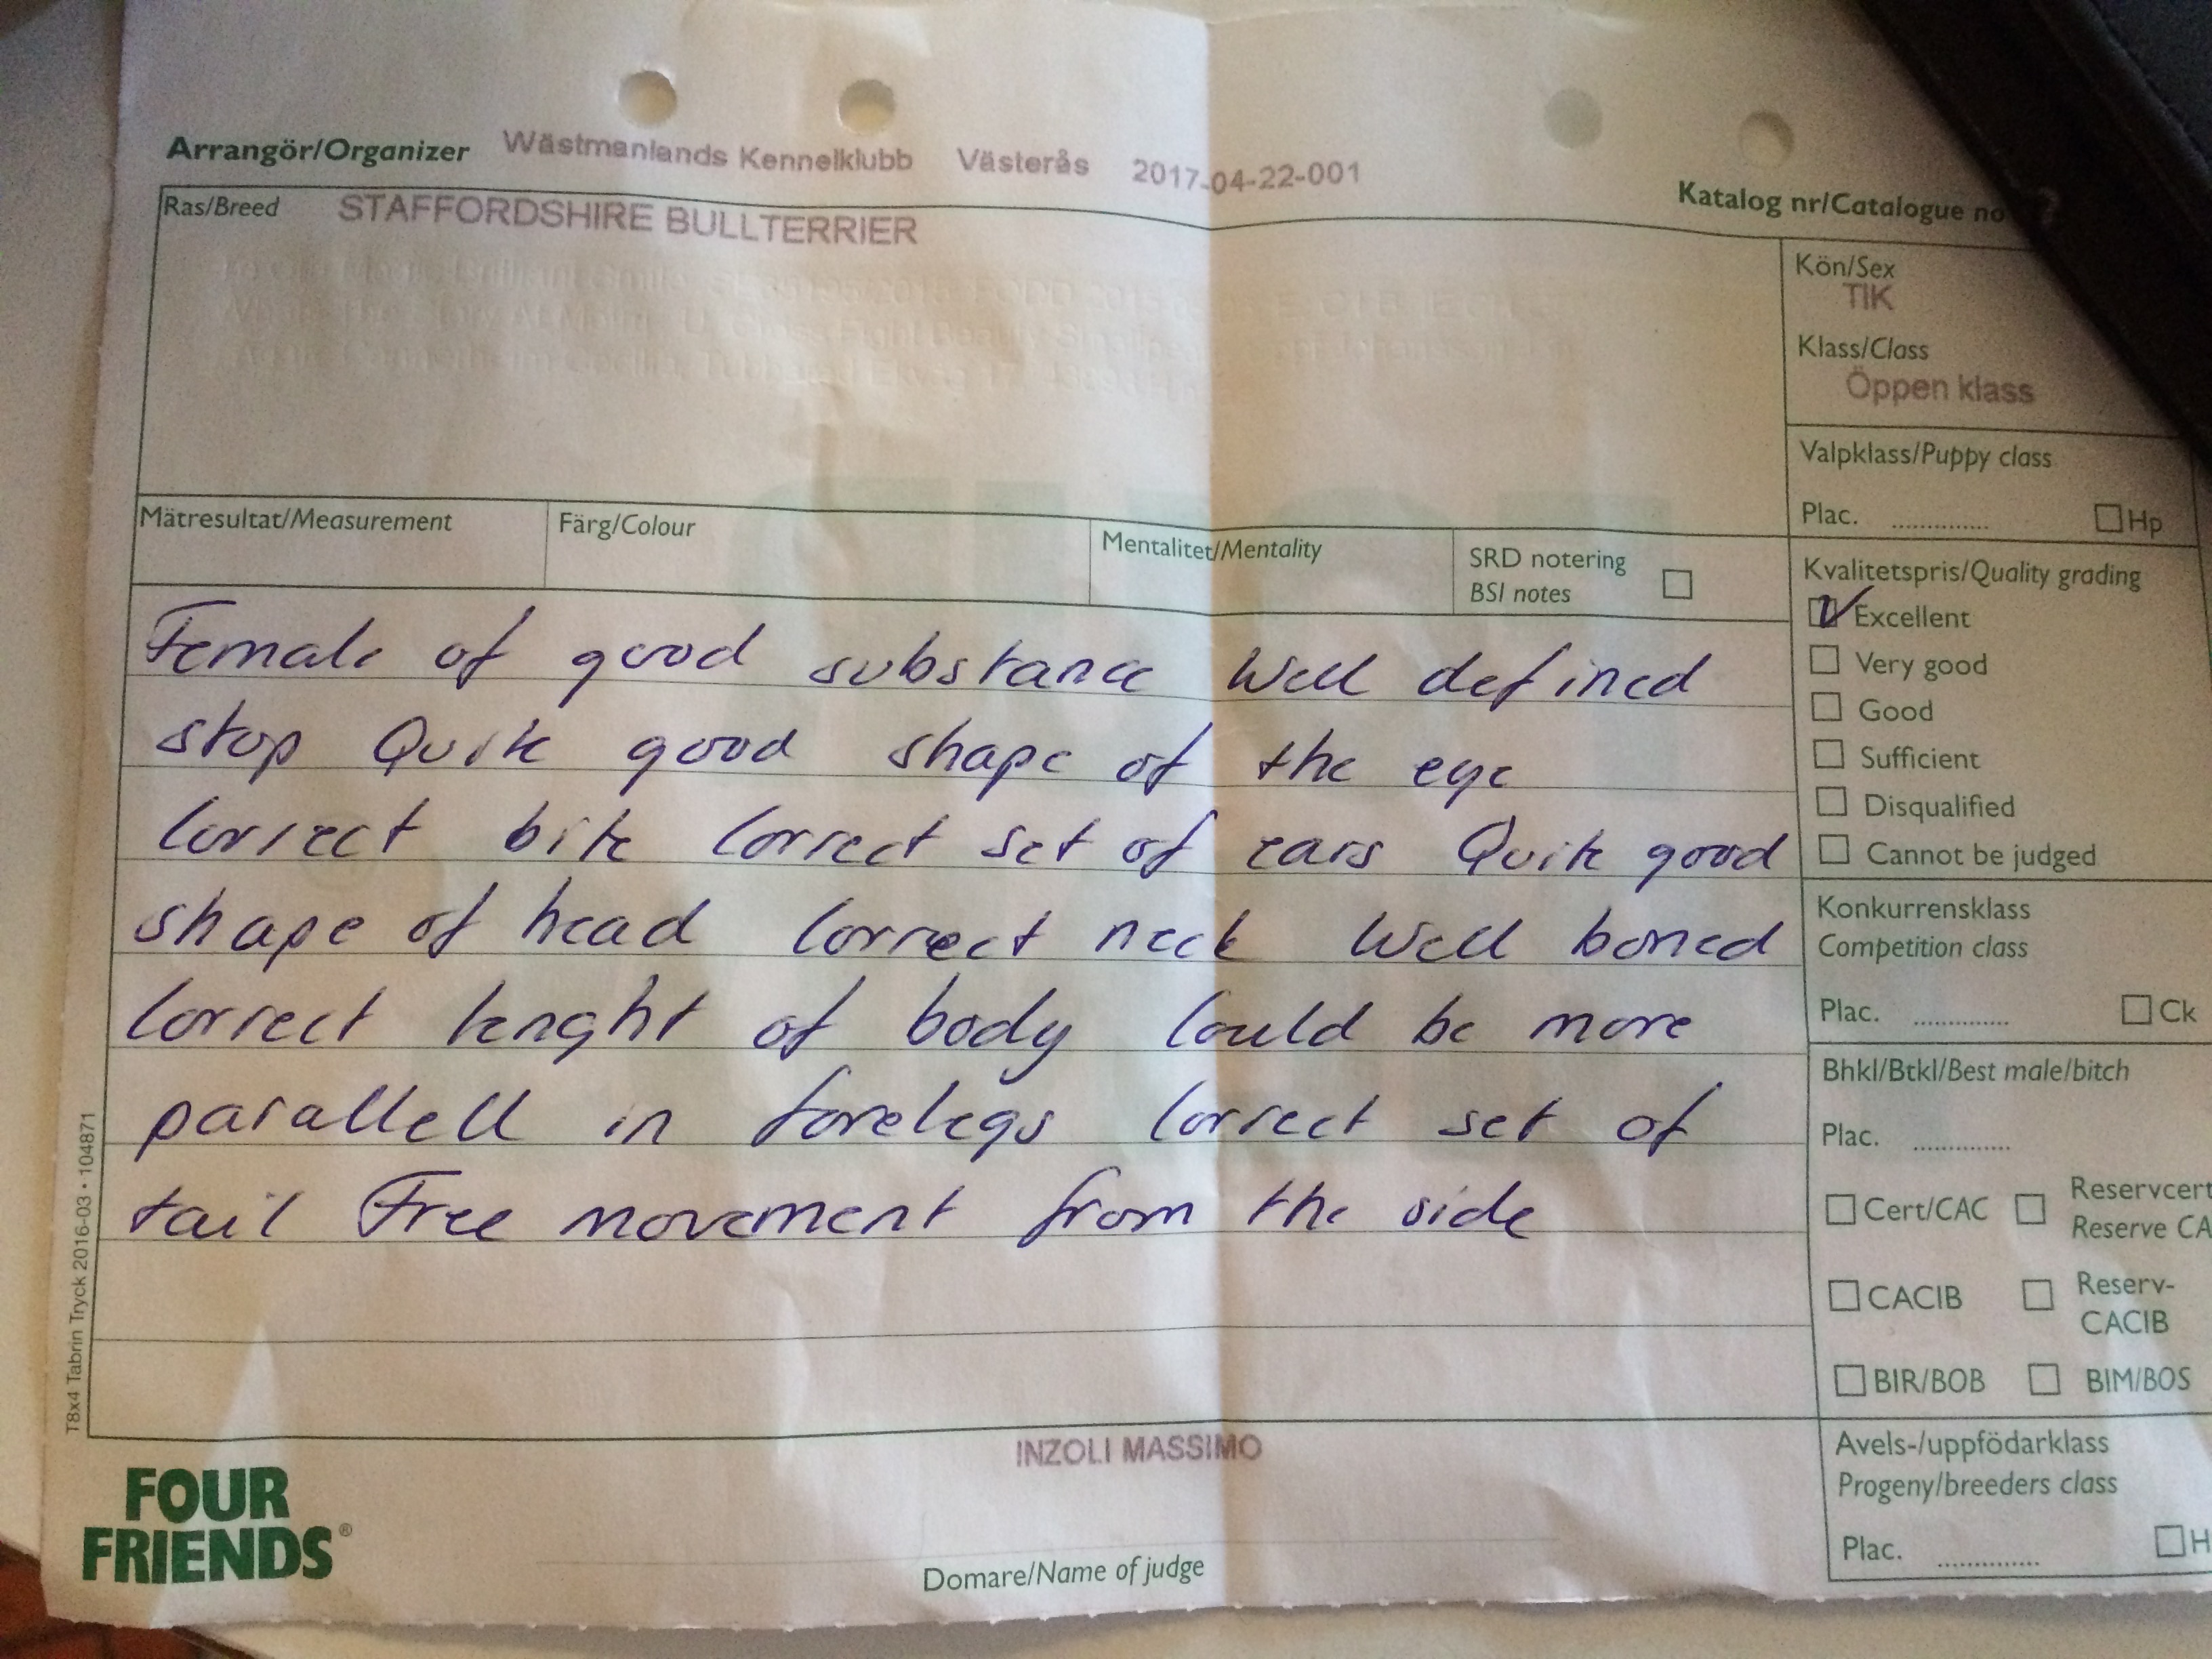 Arrangör/Organizer Wästmanlands Kennelklubb Västerås 2017-04-22-001
Katalog nr/Catalogue no
Ras/Breed STAFFORDSHIRE BULLTERRIER
Kön/Sex
TIK
Klass/Class
Öppen klass
Valpklass/Puppy class
Plac. .............. Hp
Mätresultat/Measurement
Färg/Colour
Mentalitet/Mentality
SRD notering
BSI notes
Kvalitetspris/Quality grading
Excellent
Very good
Good
Sufficient
Disqualified
Cannot be judged
Female of good substance Well defined
stop Quite good shape of the eye
Correct bite Correct set of ears Quite good
shape of head Correct neck Well boned
Correct lenght of body Could be more
parallell in forelegs Correct set of
tail Free movement from the side
Konkurrensklass
Competition class
Plac. .............. Ck
Bhkl/Btkl/Best male/bitch
Plac. ..............
Cert/CAC
Reservcert
Reserve CA
CACIB
Reserv-
CACIB
BIR/BOB BIM/BOS
Avels-/uppfödarklass
Progeny/breeders class
Plac. .............. H
T8x4 Tabrin Tryck 2016-03 • 104871
INZOLI MASSIMO
Domare/Name of judge
FOUR
FRIENDS®